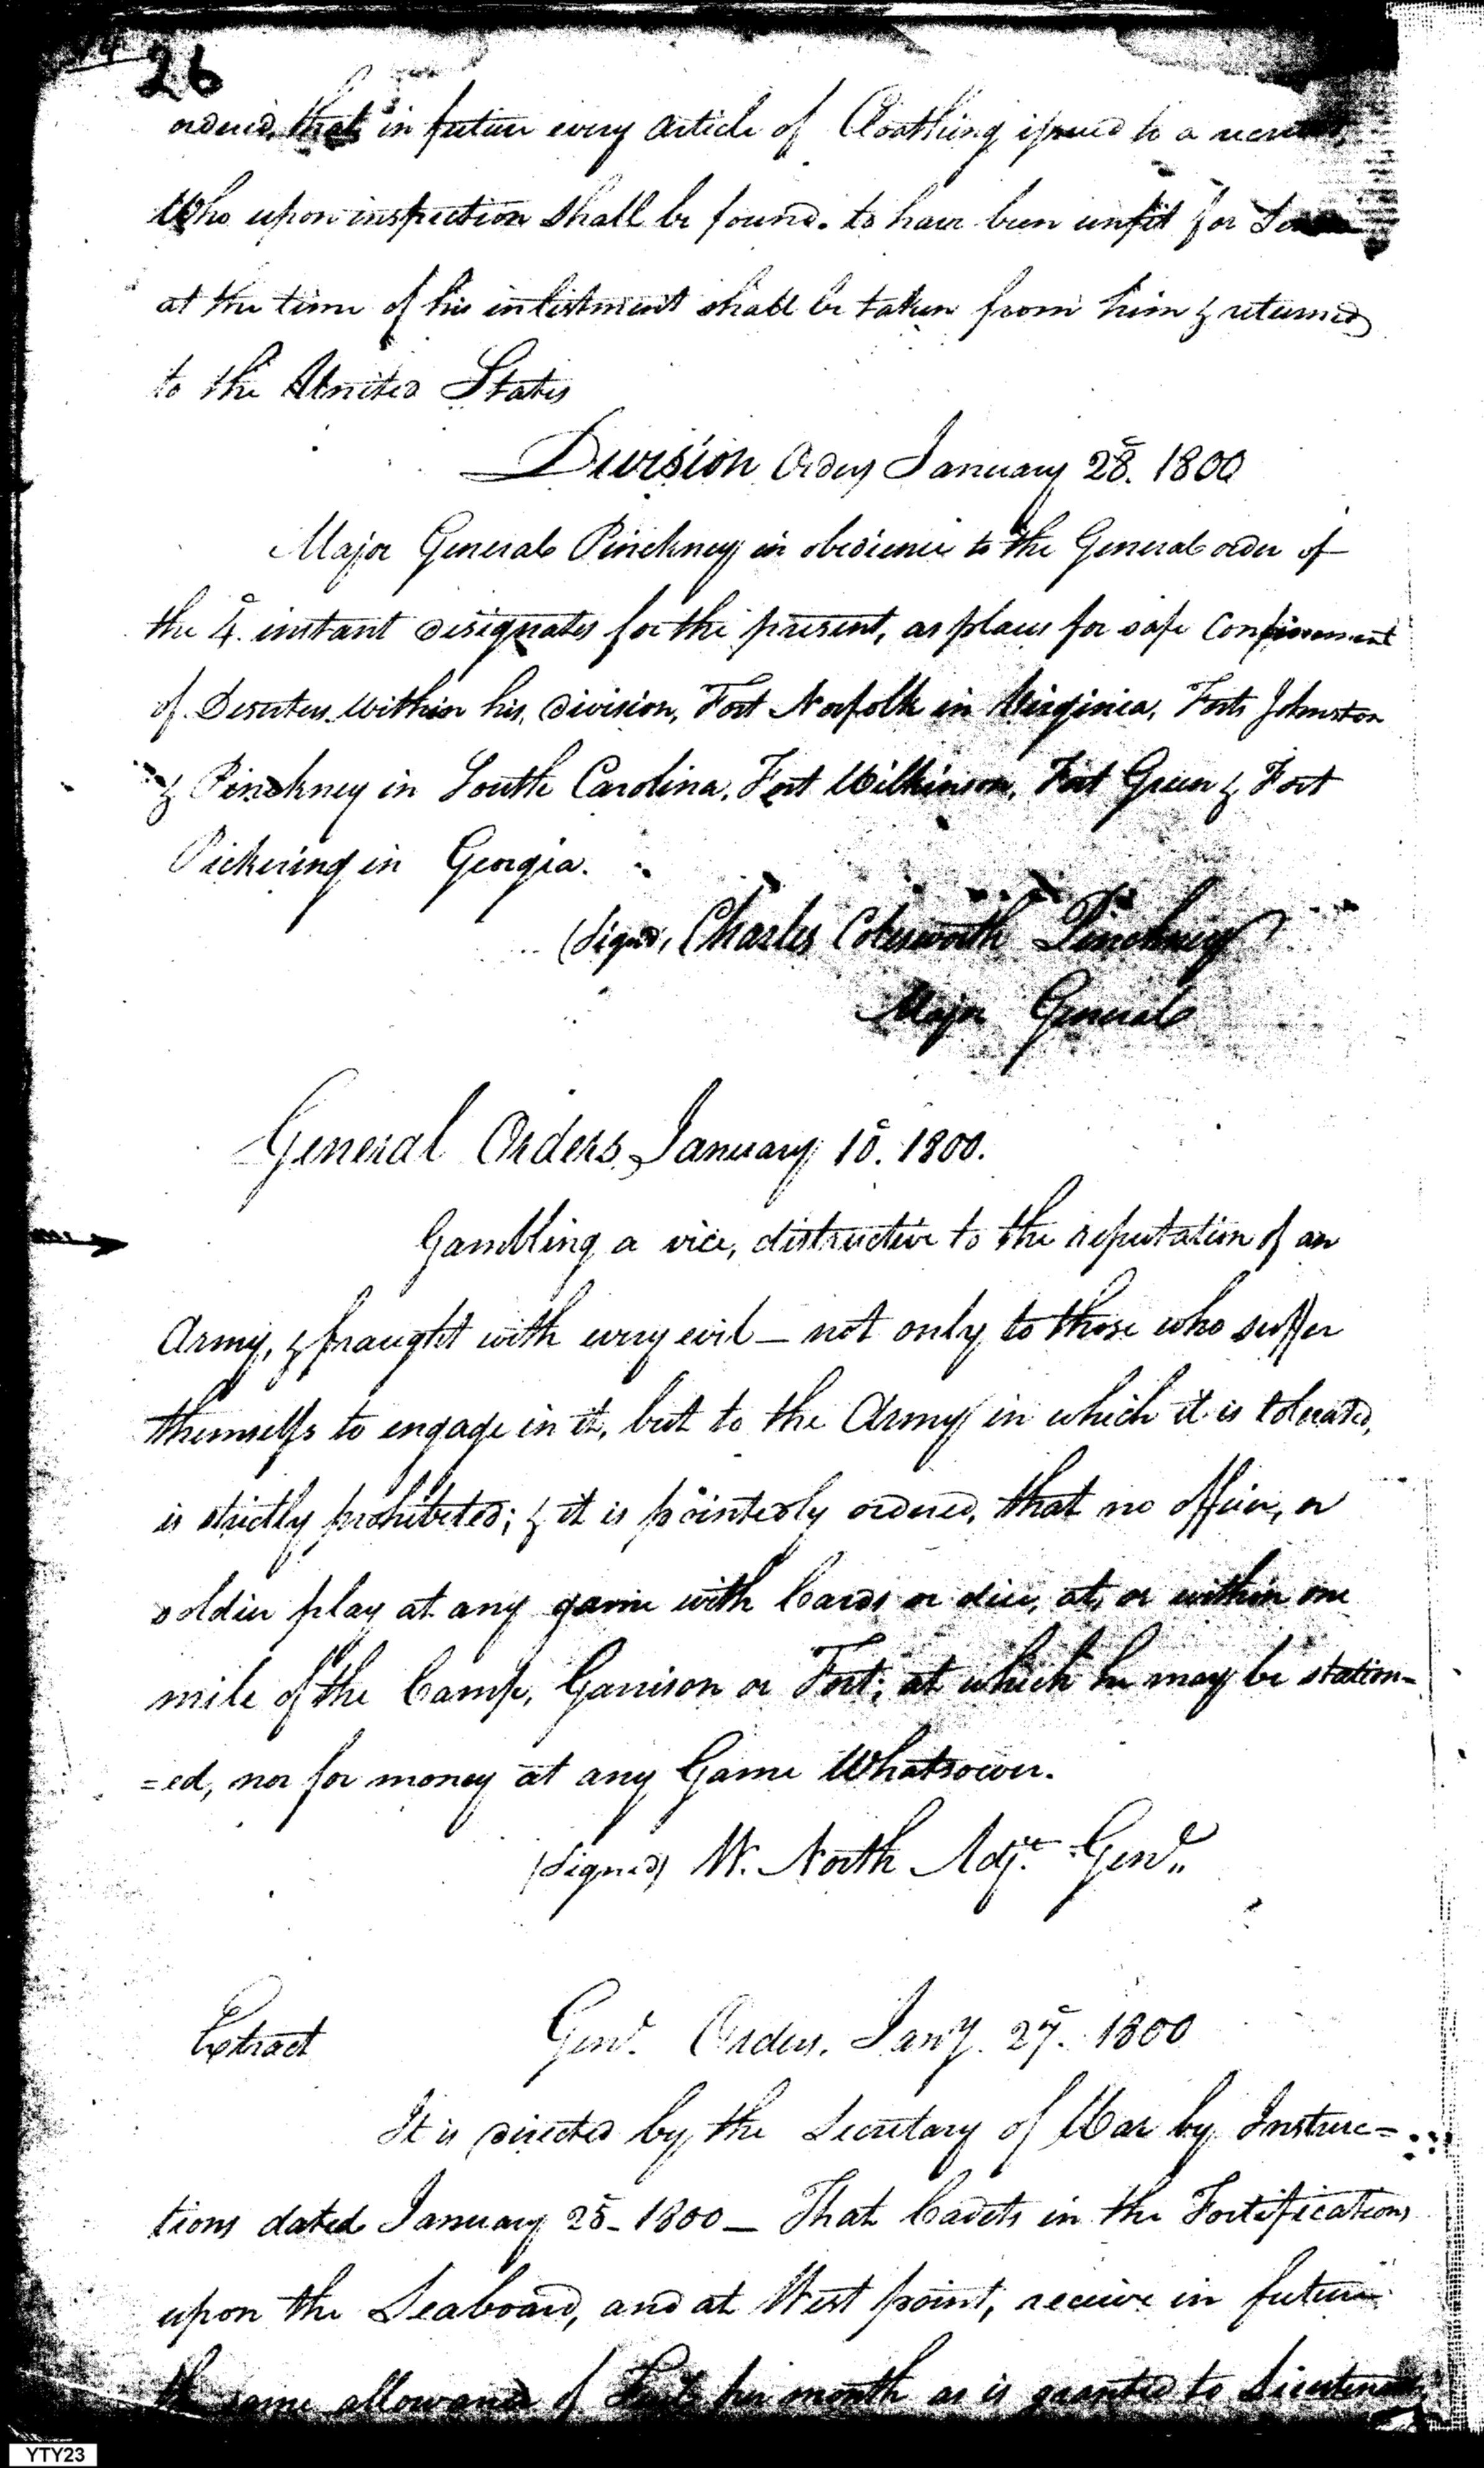 26
ordered, that in future every article of Cloathing issued to a
Who upon inspection shall be found. to have been unfit for
at the time of his inlistment shall be taken from him & returned
to the United States
Division Orders January 28. 1800
Major General Pinckney in obedience to the General order of
the 4. instant designates for the present, as places for safe Confinement
of Deserters within his, division, Fort Norfolk in Virginia, Forts Johnston
& Pinckney in South Carolina, Fort Wilkinson, Fort Green & Fort
Pickering in Georgia.
(Signd, Charles Cotesworth Pinckney
Major General
General Orders, January 10. 1800.
Gambling a vice, distructive to the reputation of an
Army, & fraught with every evil — not only to those who suffer
themselfs to engage in it, but to the Army in which it is tolerated,
is strictly prohibited; & it is pointedly ordered, that no officer, or
soldier play at any game with Cards or dice, at, or within one
mile of the Camp, Garrison or Fort; at which he may be station=
=ed, nor for money at any Game Whatsoever.
(Signed) W. North Adjt. Genl.,
Extract Genl. Orders. Jany. 27. 1800
It is directed by the Secretary of War by Instruc=
tions dated January 25 - 1800 — That Cadets in the Fortifications
upon the Seaboard, and at West point, receive in future
the same allowance of per month as is granted to
YTY23